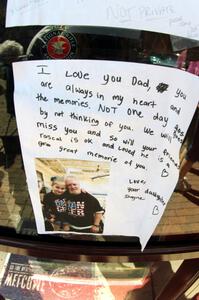 NOT PRIVATE
I Love you Dad, you
are always in my heart and
the memories. NOT one day goes
by not thinking of you. We will
miss you and so will your friends
rascal is ok and Loved he is a
great memorie of you.
Love,
your daughter
WELCOME